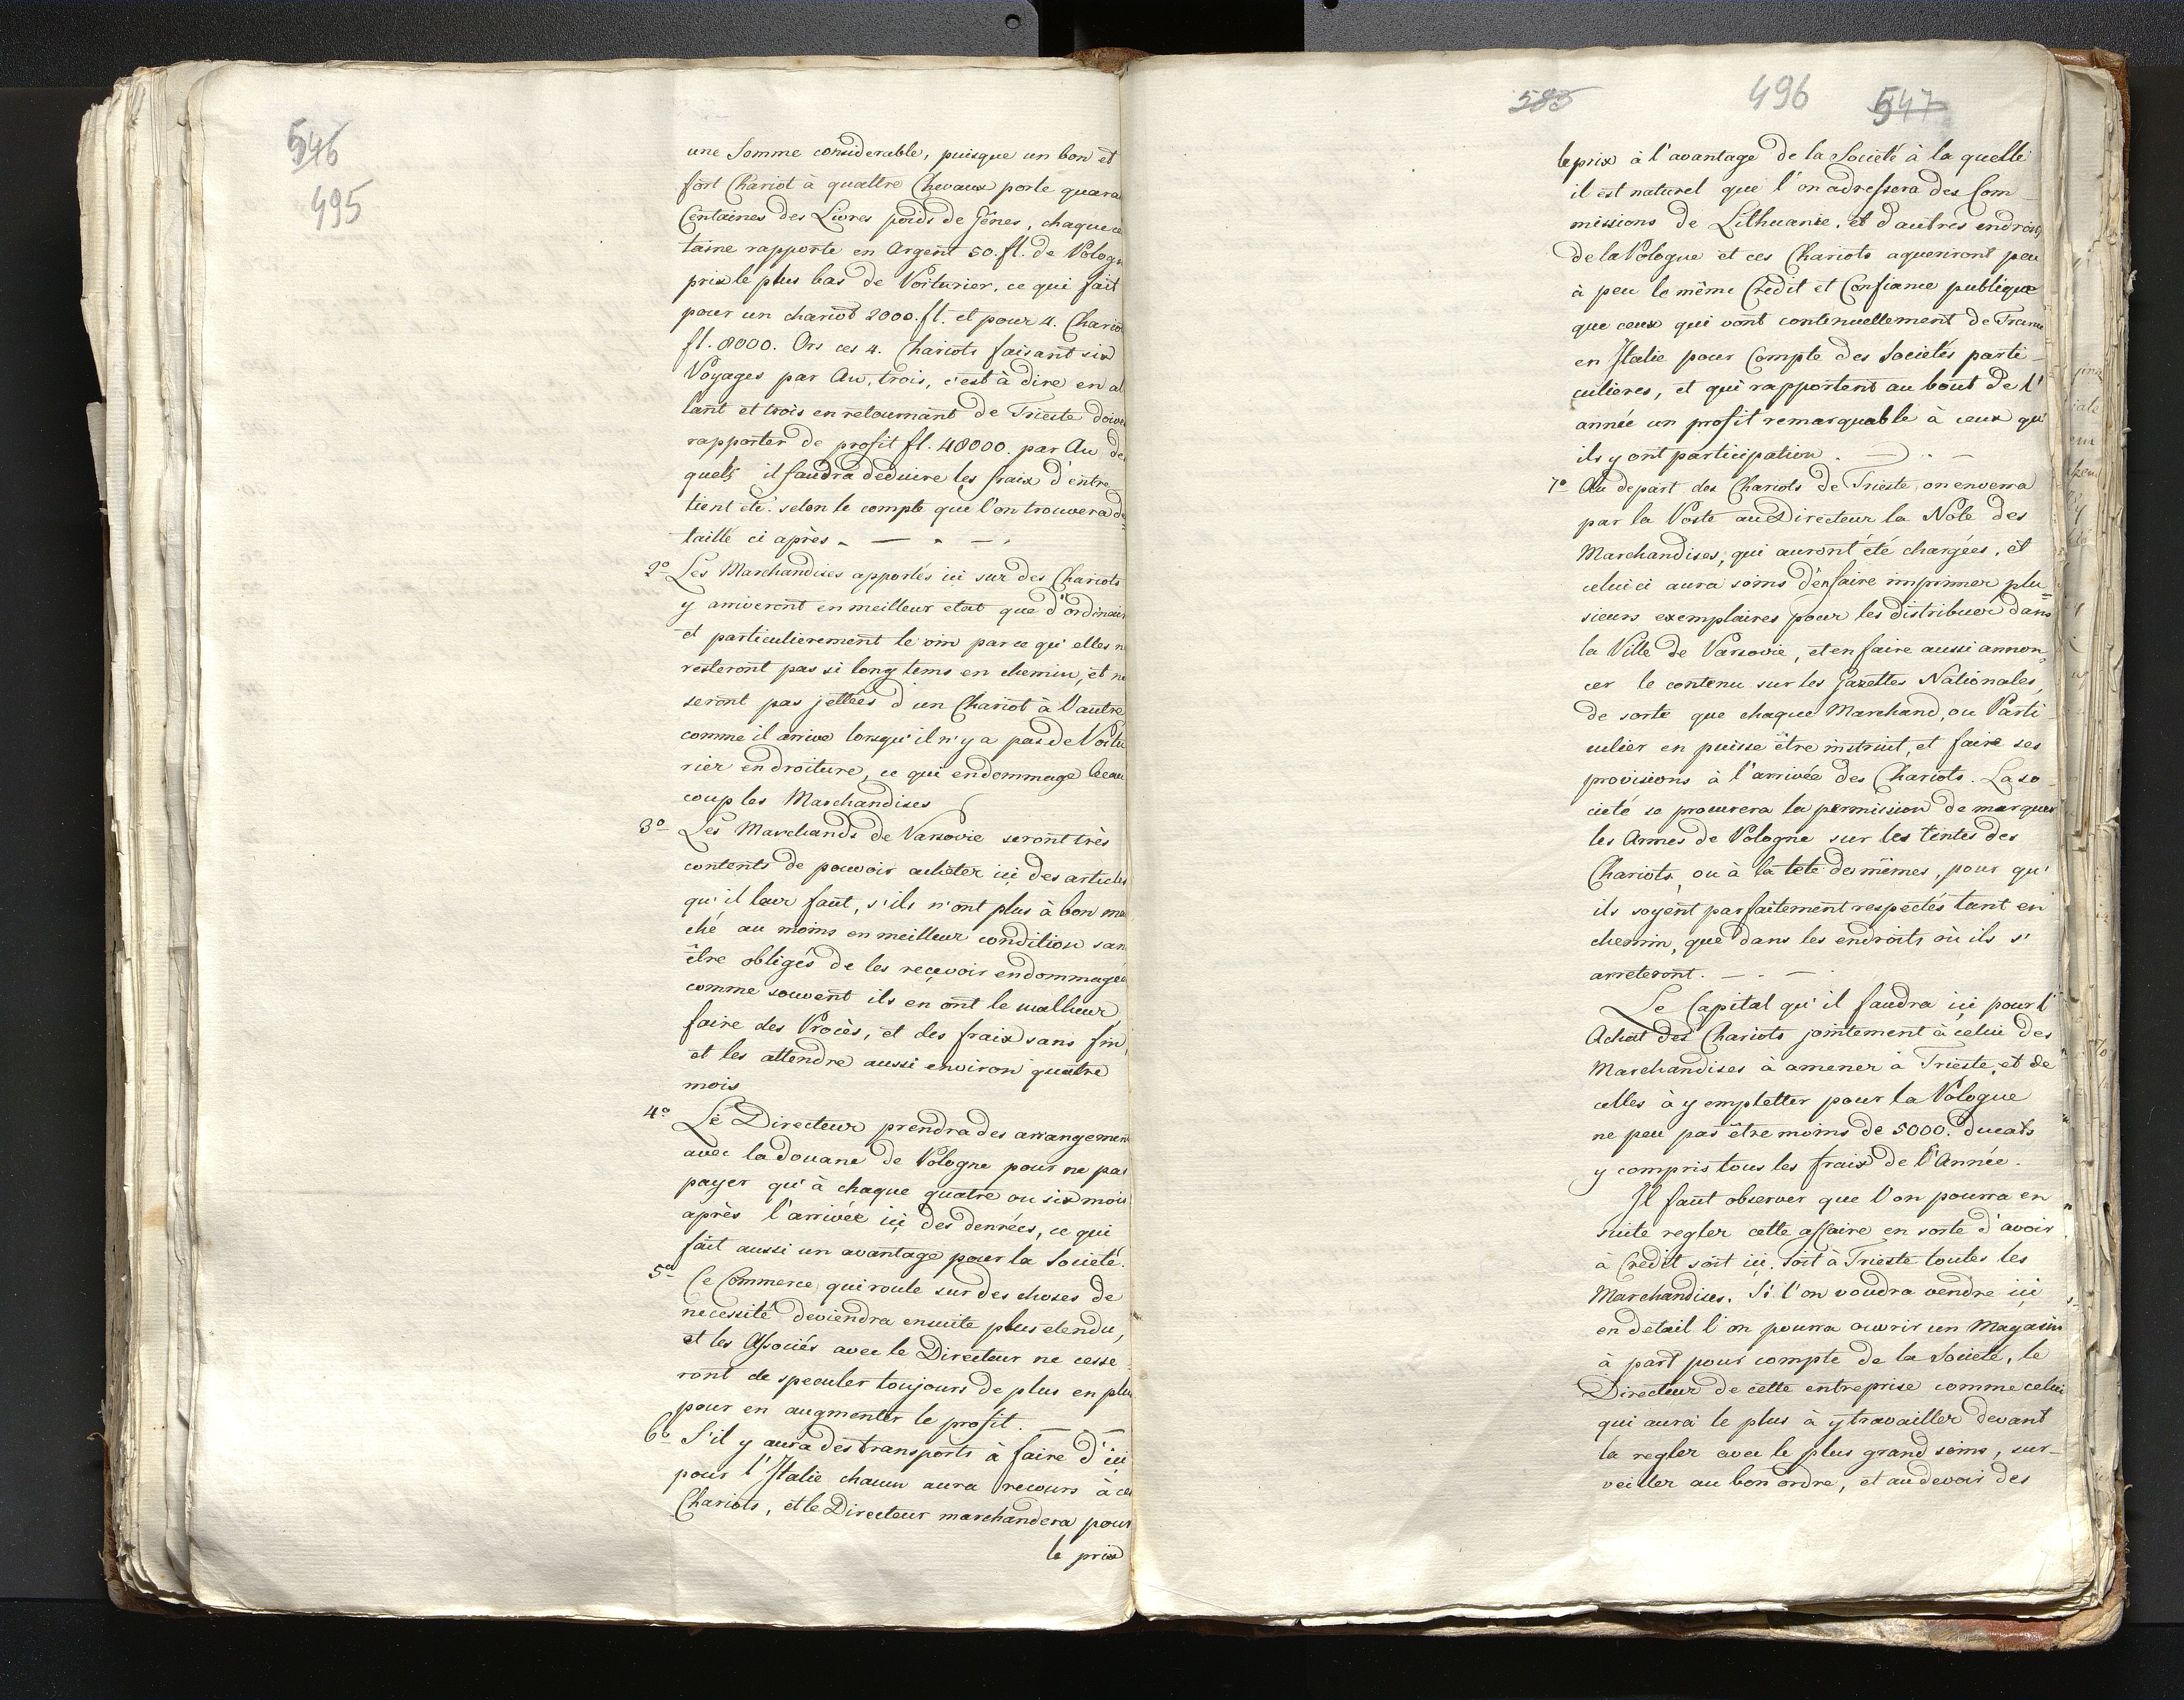 546
495
une Somme considerable, puisque un bon et
fort Chariot à quattre Chevaux porte quara
Centaines des Livres poids de Gênes, chaque ce
taine rapporte en Argent 50. fl. de Pologn
prix le plus bas de Voiturier, ce qui fait
pour un chariot 2000. fl. et pour 4. Chario
fl. 8000. Ors ces 4. Chariots faisant six
Voyages par An, trois, c'est à dire en al
lant et trois en retournant de Trieste doive
rapporter de profit fl. 48000. par An de
quels il faudra deduire les fraix d'entre
tient etc: selon le compte que l'on trouvera de
taillé ci après. — . — .
2o Les Marchandises apportés ici sur des Chariots
y arriveront en meilleur etat que d'ordinair
et particulierement le vin parce qu'elles n
resteront pas si long tems en chemin, et ne
seront pas jettées d'un Chariot à l'autre
comme il arrive lorsqu'il n'y a pas de Voitu
rier en droiture, ce qui endommage beau
coup les Marchandises
3o Les Marchands de Varsovie seront très
contents de pouvoir acheter ici des articles
qu'il leur faut, s'ils n'ont plus à bon mar
ché au moins en meilleur condition san
être obligés de les reçevoir endommagée
comme souvent ils en ont le malheur,
faire des Procès, et des fraix sans fin,
et les attendre aussi environ quatre
mois
4o Le Directeur prendra des arrangemen
avec la douane de Pologne pour ne pas
payer qu'à chaque quatre ou six mois
après l'arrivée ici des denrées, ce qui
fait aussi un avantage pour la Societé.
5o Ce Commerce qui roule sur des choses de
necessité deviendra ensuite plus etendu,
et les Associés avec le Directeur ne cesse
ront de speculer toujours de plus en plus
pour en augmenter le profit. — —
6o S'il y aura des transports à faire d'ici
pour l'Italie chacun aura recours à ces
Chariots, et le Directeur marchandera pour
le prix
583 496 547
le prix à l'avantage de la Societé à la quelle
il est naturel que l'on adressera des Com_
missions de Lithuanie, et d'autres endroits
de la Pologne et ces Chariots aqueriront peu
à peu le même Crédit et Confiance publique
que ceux qui vont continuellement de France
en Italie pour Compte des Societés parti_
culieres, et qui rapportent au bout de l'
année un profit remarquable à ceux qu'
ils y ont participation. — . —
7o Au depart des Chariots de Trieste, on enverra
par la Poste au Directeur la Note des
Marchandises, qui auront été chargées, et
celui ci aura soins d'en faire imprimer plu=
sieurs exemplaires pour les distribuer dans
la Ville de Varsovie, et en faire aussi annon
cer le contenu sur les Gazettes Nationales,
de sorte que chaque Marchand, ou Parti_
culier en puisse être instruit, et faire ses
provisions à l'arrivée des Chariots. La so_
cieté se procurera la permission de marquer
les Armes de Pologne sur les tentes des
Chariots, ou à la tête des mêmes, pour qu'
ils soyent parfaitement respectés tant en
chemin, que dans les endroits où ils s'
arreteront. — . — .
Le Capital qu'il faudra ici pour l'
Achat des Chariots jointement à celui des
Marchandises à amener à Trieste, et de
celles à y empletter pour la Pologne
ne peu pas être moins de 5000. ducats
y compris tous les fraix de l'Année.
Il faut observer que l'on pourra en
suite regler cette affaire en sorte d'avoir
à Credit soit ici, soit à Trieste toutes les
Marchandises. Si l'on voudra vendre ici
en detail l'on pourra ouvrir un Magasin
à part pour compte de la Societé, le
Directeur de cette entreprise comme celui
qui aura le plus à y travailler devant
la regler avec le plus grand soins, sur_
veiller au bon ordre, et au devoir des